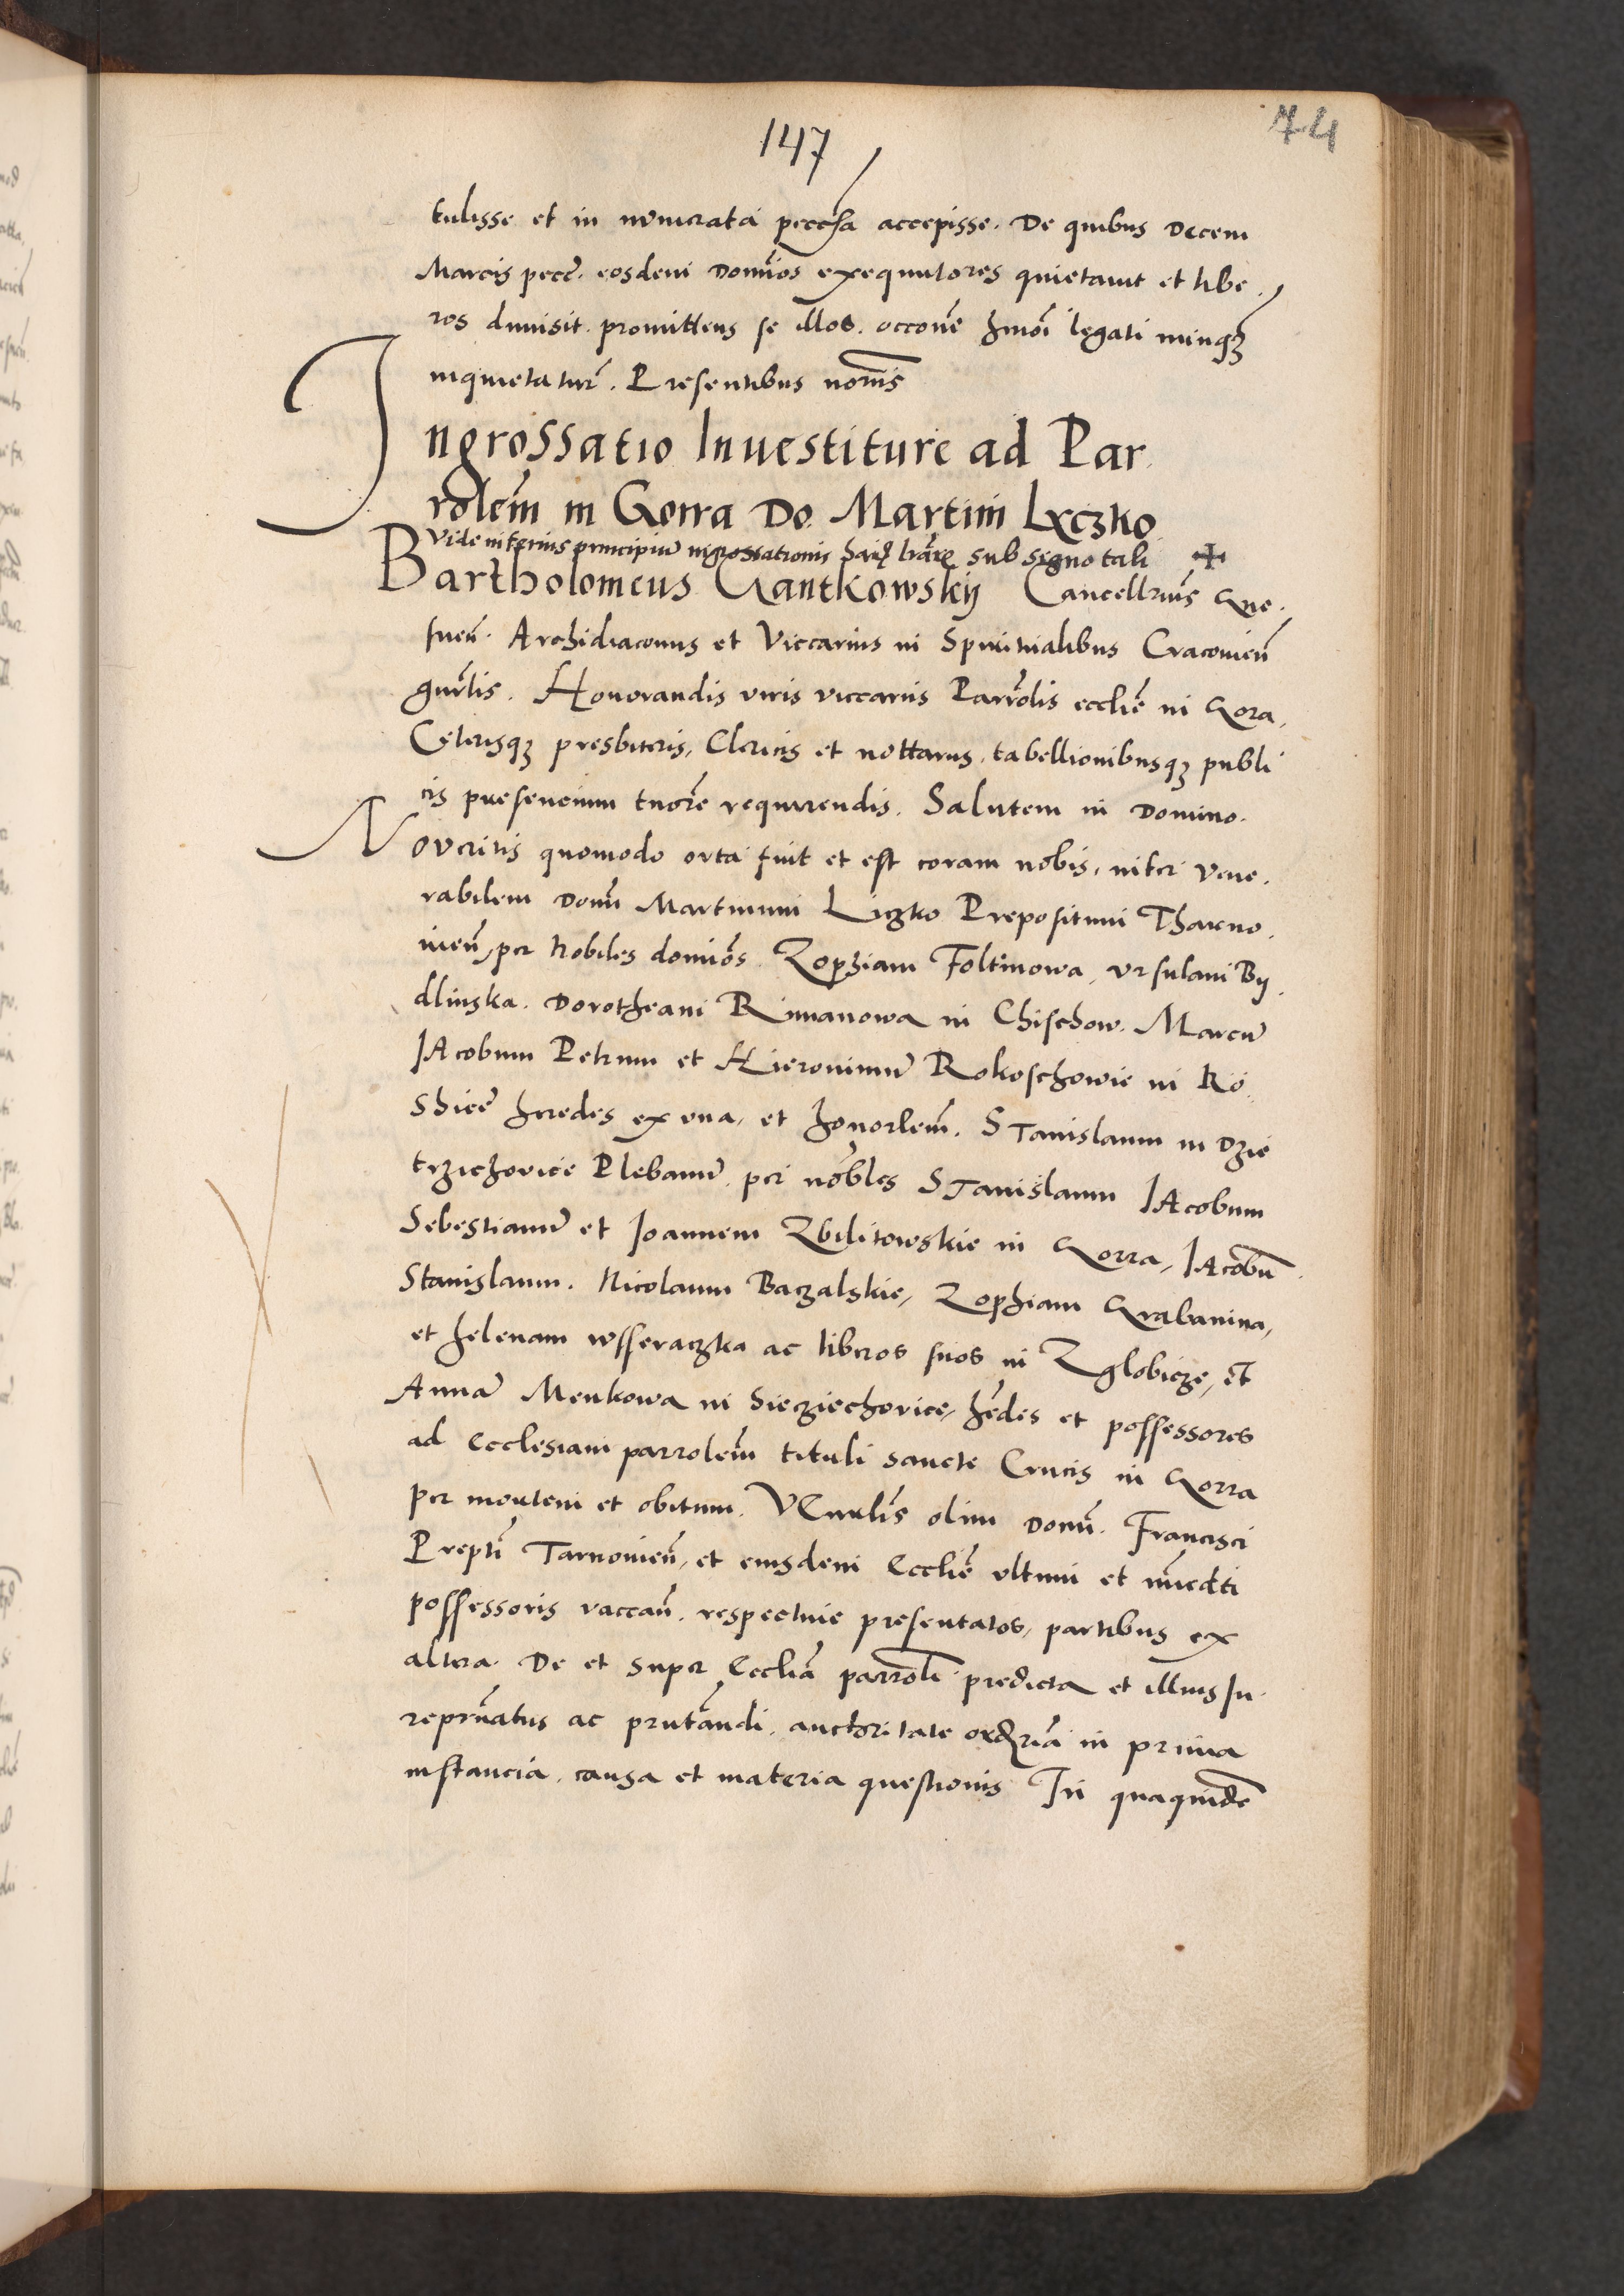 147
74
tulisse et in numerata pecc̃ia accepisse. De quibus Decem
Marcis pecc̃. eosdem Dominos exequutores quietavit et libe.
ros dimisit. promittens se illos. occone hmoi legati nunq̃
inquietatur̃. Presentibus nominis
Ingrossatio Inuestiture ad Par
rolem̃ in Gorra Do. Martini Liczko
Vide inferius principiũ ingrossationis harũ lrarũ sub signo tali ✢
Bartholomeus Gantkowskij Cancellrius Gne.
snen̄. Archidiaconus et Viccarius in Spiritualibus Cracovien̄
gnrlis. Honorandis viris viccariis Parrolis ecclie in Gora.
Ceterisq presbiteris, Clericis et nottarus, tabellionibusq publi
cis presencium tnore requirendis. Salutem in Domino.
Noveritis quomodo orta fuit et est coram nobis, inter Vene.
rabilem Dom̃ Martinum Liczko Prepositum Tharno.
vien̄, per Nobiles dominos Zophiam Foltinowa, Ursulam By.
dlinska. Dorotheam Rimanowa in Chischow. Marcũ
Jacobum Petrum et Hieronimũ Rokoschowie in Ko
shice heredes ex una, et honorlem̃. Stanislaum in Dzie
trzichovice Plebanũ, per nobles Stanislaum Jacobum
Sebestianũ et Joannem Zbilitowskie in Gorra, Jacobũ
Stanislaum. Nicolaum Baczalskie, Zophiam Grabanina,
et helenam wsseraczka ac liberos suos in Zglobicze, et
Annã Menkowa in Siecziechovice, hedes et possessores
ad Ecclesiam parrolem̃ tituli sancte Crucis in Gorra
per mortem et obitum. Venrlis olim Dom̃. Francisci
Prepti Tarnovien̄, et eiusdem Ecclie ultimi et imedti
possessoris vaccan̄. respective presentatos, partibus ex
altera. De et super Ecclia parroli predicta et illius Iu.
repr̃natus ac prntandi. auctoritate ordria in prima
instancia, causa et materia questionis In quaquidẽ